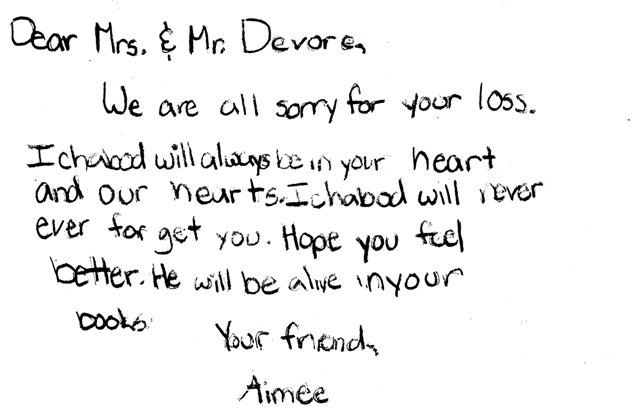 Dear Mrs. & Mr. Devore,
We are all sorry for your loss.
Ichabod will always be in your heart
and our hearts. Ichabod will never
ever for get you. Hope you feel
better. He will be alive in your
books.
Your friend,
Aimee